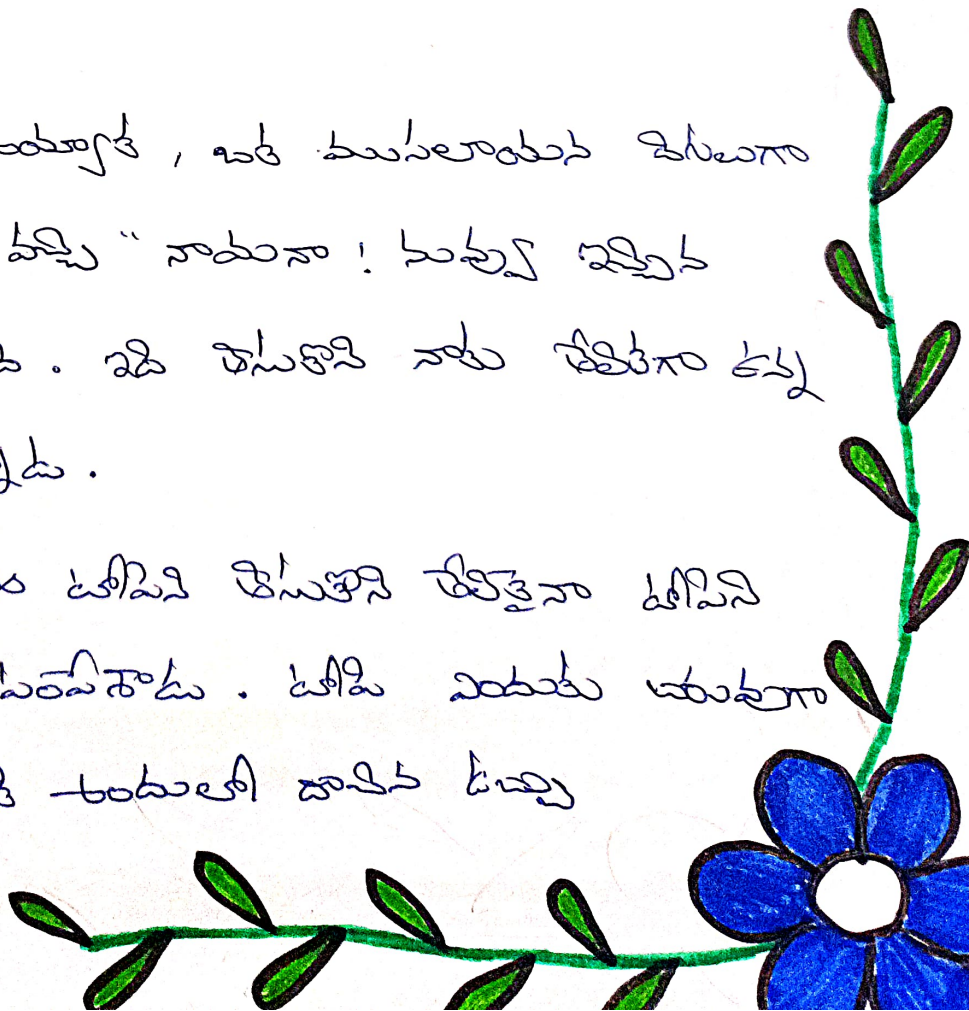 అయ్యాక , ఒక ముసలాయన దిగులుగా
వచ్చి " నాయనా ! నువ్వు ఇచ్చిన
. ఇది తీసుకొని నాకు తేలికగా ఉన్న
న్నాడు .
టోపిని తీసుకొని తేలికైనా టోపిని
పంపేశాడు . టోపి ఎందుకు బరువుగా
అందులో దాచిన డబ్బు